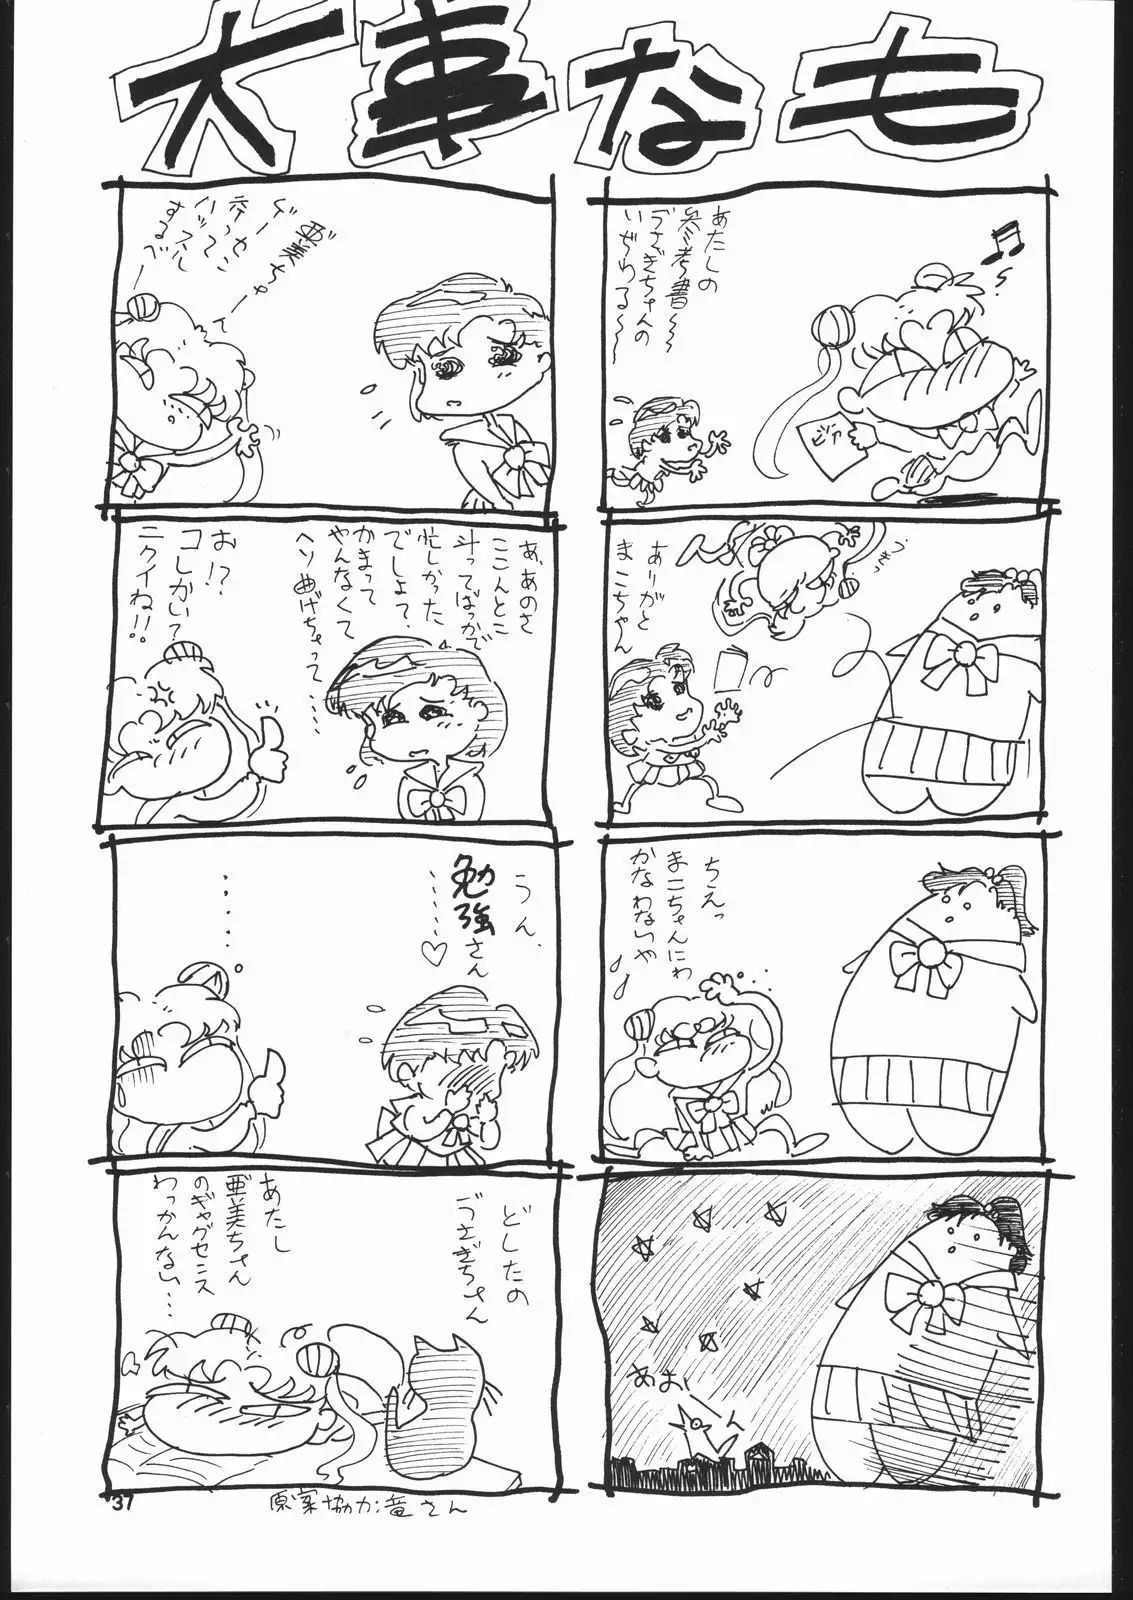 大事なも
あたしの
参考書〜〜
うさぎちゃんの
いぢわる〜〜
ピア
ありがと
まこちゃん
ちえっ
まこちゃんにわ
かなわないや
♪
あお
亜美ちゃー
するべー
あ、あのさ
ここんとこ
斗ってばっかで
忙しかった
でしょて
かまって
やんなくて
ヘソ曲げちゃって・・・・・
お!?
コレかい?
ニクイね!!
うん、
勉強さん
・・・・・♡
・・・・・
どしたの
うさぎちゃん
あたし
亜美ちゃん
のギャグセンス
わっかんない・・・
37
原案協力:竜さん